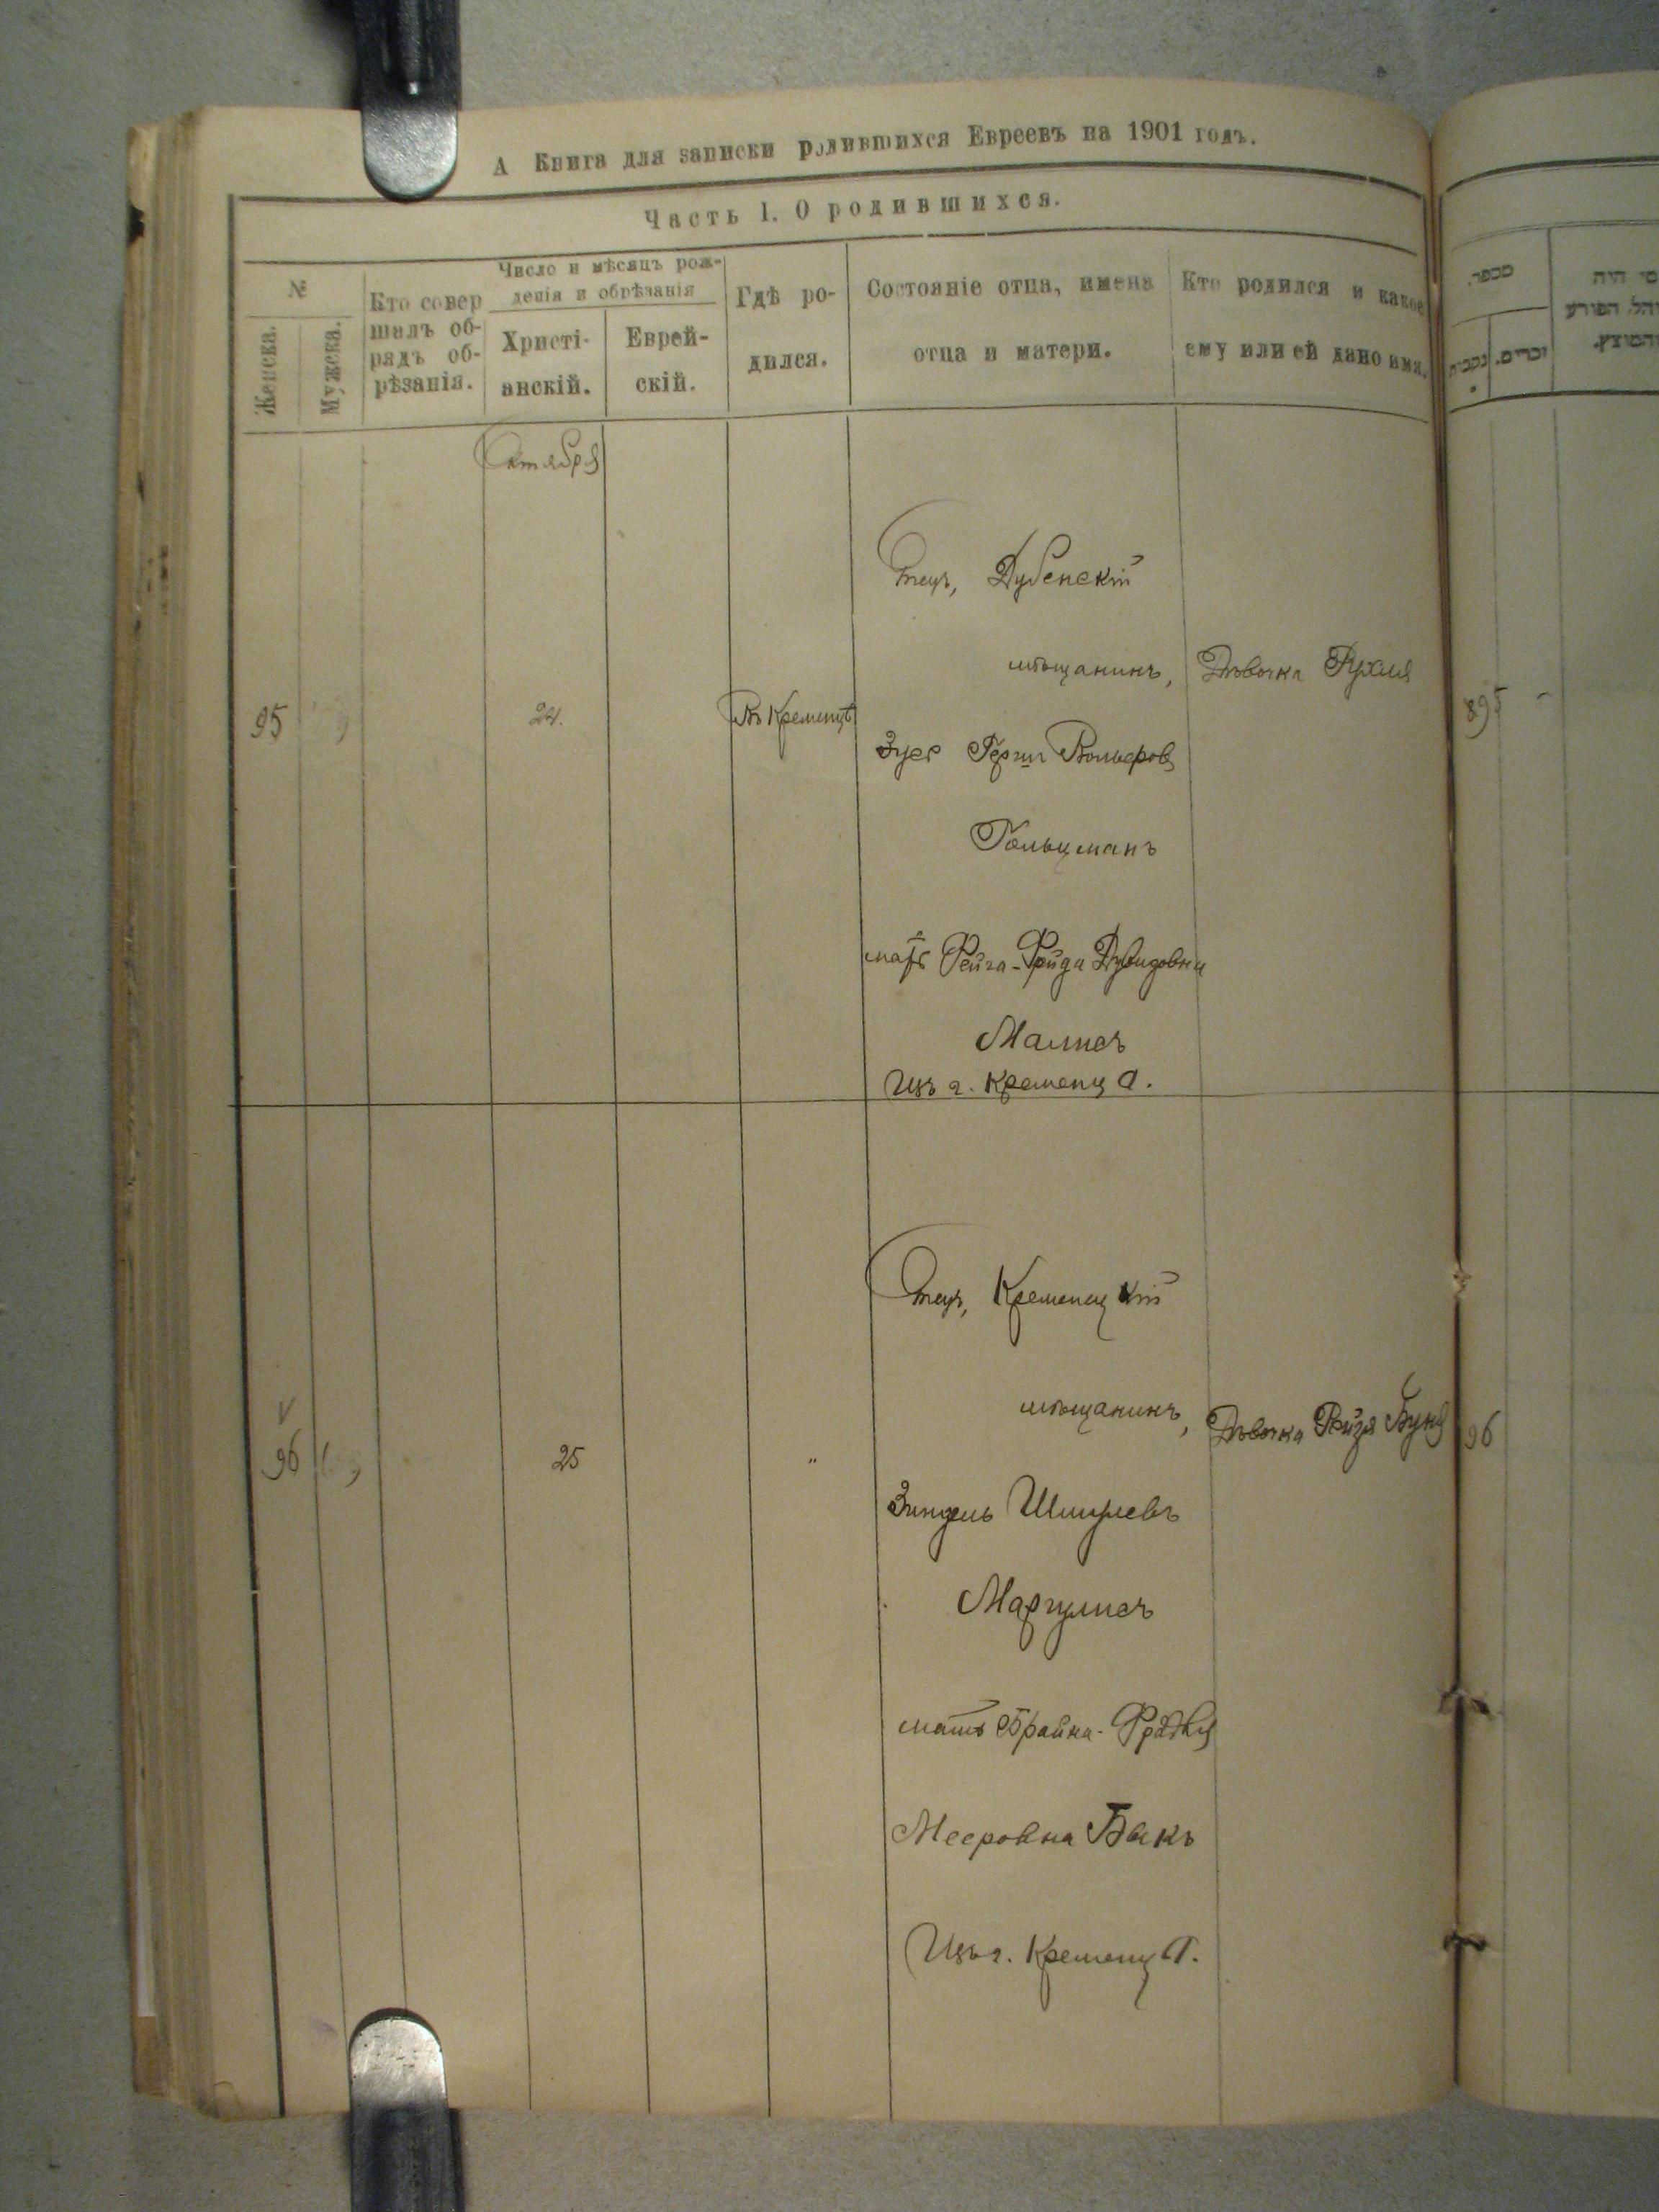 А Книга для записки родившихся Евреевъ на 1901 годъ.
Часть 1. О родившихся.
№
Женска.
Мужска.
Кто совер
шалъ об-
рядъ об-
рѣзанія.
Число и мѣсяцъ рож-
денія и обрѣзанія
Христі-
анскій.
Еврей-
скій.
Гдѣ ро-
дился.
Состояніе отца, имена
отца и матери.
Кто родился и какое
ему или ей дано имя.
Октября
95
24.
Въ Кременцѣ
Отецъ, Дубенскій
мѣщанинъ,
Гольцманъ
мать Фейга-Фрйда Дувидовна
Малисъ
Изъ г. Кременца.
Дѣвочка Рухля
96
25
"
Отецъ, Кременецкій
мѣщанинъ,
Зиндель
Маргулисъ
мать Брайна-
Мееровна Быкъ
Изъ г. Кременца.
Дѣвочка Рейзя Буня
895
96
מספר.
נקבות
זכרים.
מי היה